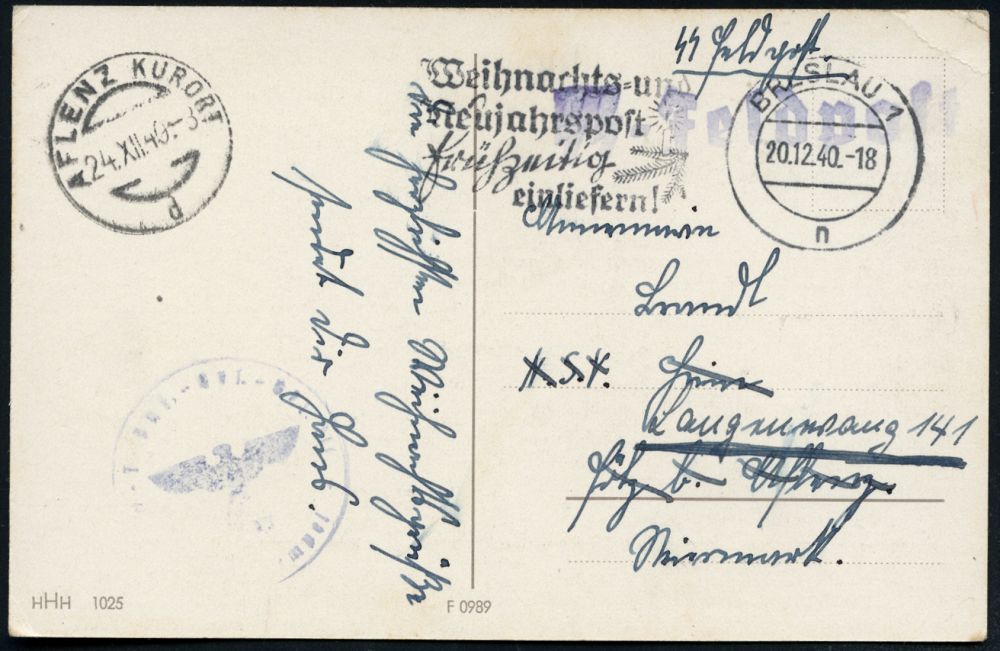 SS Feldpost
SS Feldpost
Weihnachts- und
Neujahrspost
frühzeitig
einliefern!
BRESLAU 1
20.12.40.-18
n
AFLENZ KURORT
24.XII.40.-3
d
Die herzlichsten Weihnachtsgrüße
sendet Dir
Annemarie
Brandl
Langenwang 141
b. Aflenz
Steiermark.
HHH 1025
F 0989